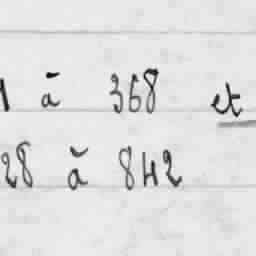 1 à 368 et
28 à 842